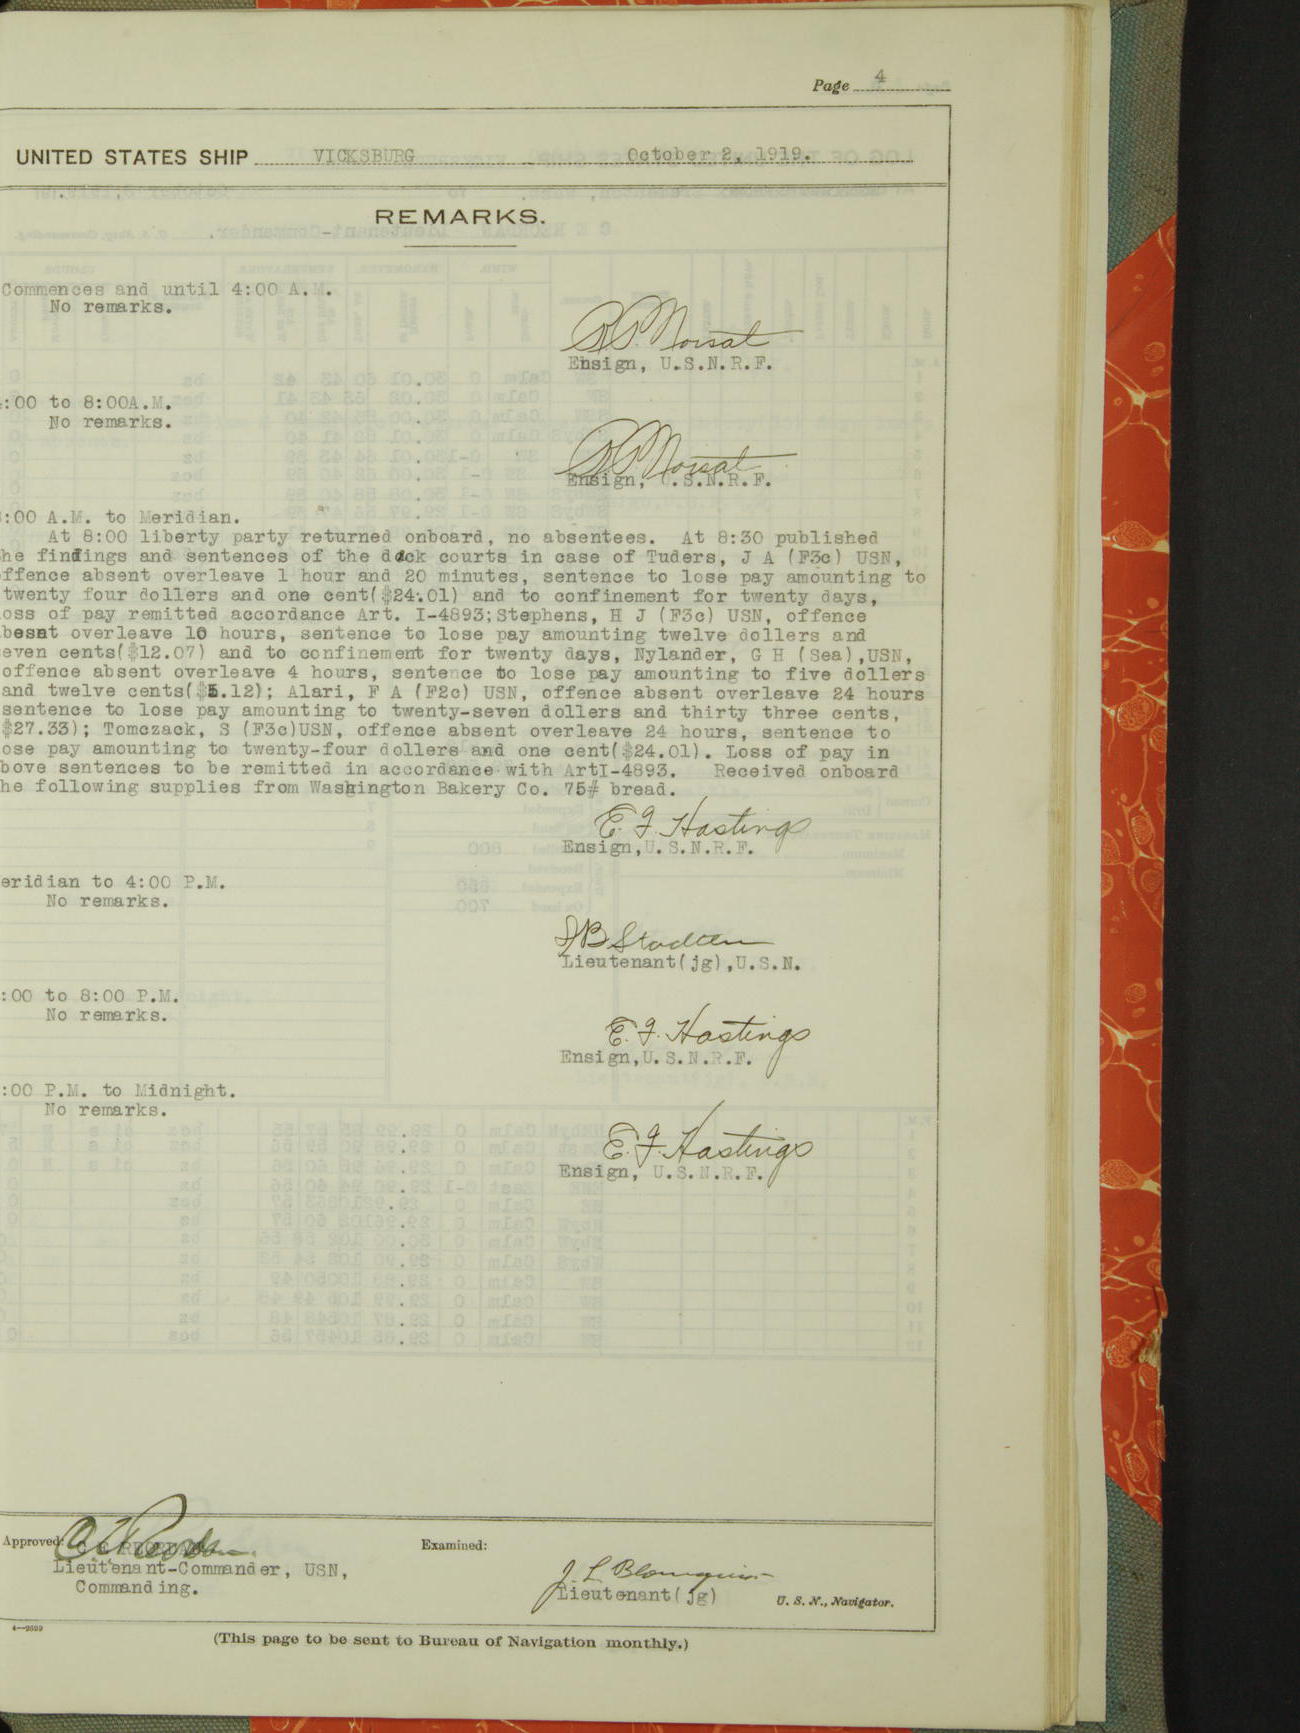 Page 4
UNITED STATES SHIP VICKSBURG October 2, 1919.
REMARKS.
Commences and until 4:00 A.M.
No remarks.
Ensign, U.S.N.R.F.
:00 to 8:00A.M.
No remarks.
Ensign, U.S.N.R.F.
:00 A.M. to Meridian.
At 8:00 liberty party returned onboard, no absentees. At 8:30 published
he findings and sentences of the deck courts in case of Tuders, J A (F3c) USN,
ffence absent overleave 1 hour and 20 minutes, sentence to lose pay amounting to
twenty four dollers and one cent($24.01) and to confinement for twenty days,
oss of pay remitted accordance Art. I-4893;Stephens, H J (F3c) USN, offence
besnt overleave 10 hours, sentence to lose pay amounting twelve dollers and
even cents($12.07) and to confinement for twenty days, Nylander, G H (Sea),USN,
offence absent overleave 4 hours, sentence to lose pay amounting to five dollers
and twelve cents($5.12); Alari, F A (F2c) USN, offence absent overleave 24 hours
sentence to lose pay amounting to twenty-seven dollers and thirty three cents,
$27.33); Tomczack, S (F3c)USN, offence absent overleave 24 hours, sentence to
ose pay amounting to twenty-four dollers and one cent($24.01). Loss of pay in
bove sentences to be remitted in accordance with ArtI-4893. Received onboard
he following supplies from Washington Bakery Co. 75# bread.
E. F. Hastings
Ensign,U.S.N.R.F.
eridian to 4:00 P.M.
No remarks.
Lieutenant(jg),U.S.N.
:00 to 8:00 P.M.
No remarks.
E. F. Hastings
Ensign,U.S.N.R.F.
:00 P.M. to Midnight.
No remarks.
E. F. Hastings
Ensign, U.S.N.R.F.
Approved: Examined:
Lieutenant-Commander, USN, J L Blomquist
Commanding. Lieutenant(jg) U. S. N., Navigator.
(This page to be sent to Bureau of Navigation monthly.)